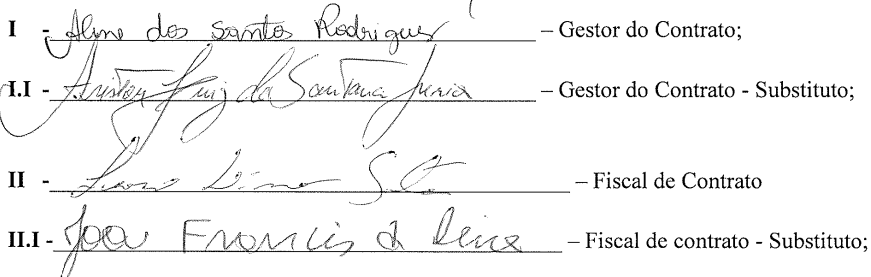 I - Aline dos Santos Rodrigues – Gestor do Contrato;
I.I - Ariston Luiz da Santana Junior – Gestor do Contrato - Substituto;
II - – Fiscal de Contrato
II.I - João Francis – Fiscal de contrato - Substituto;